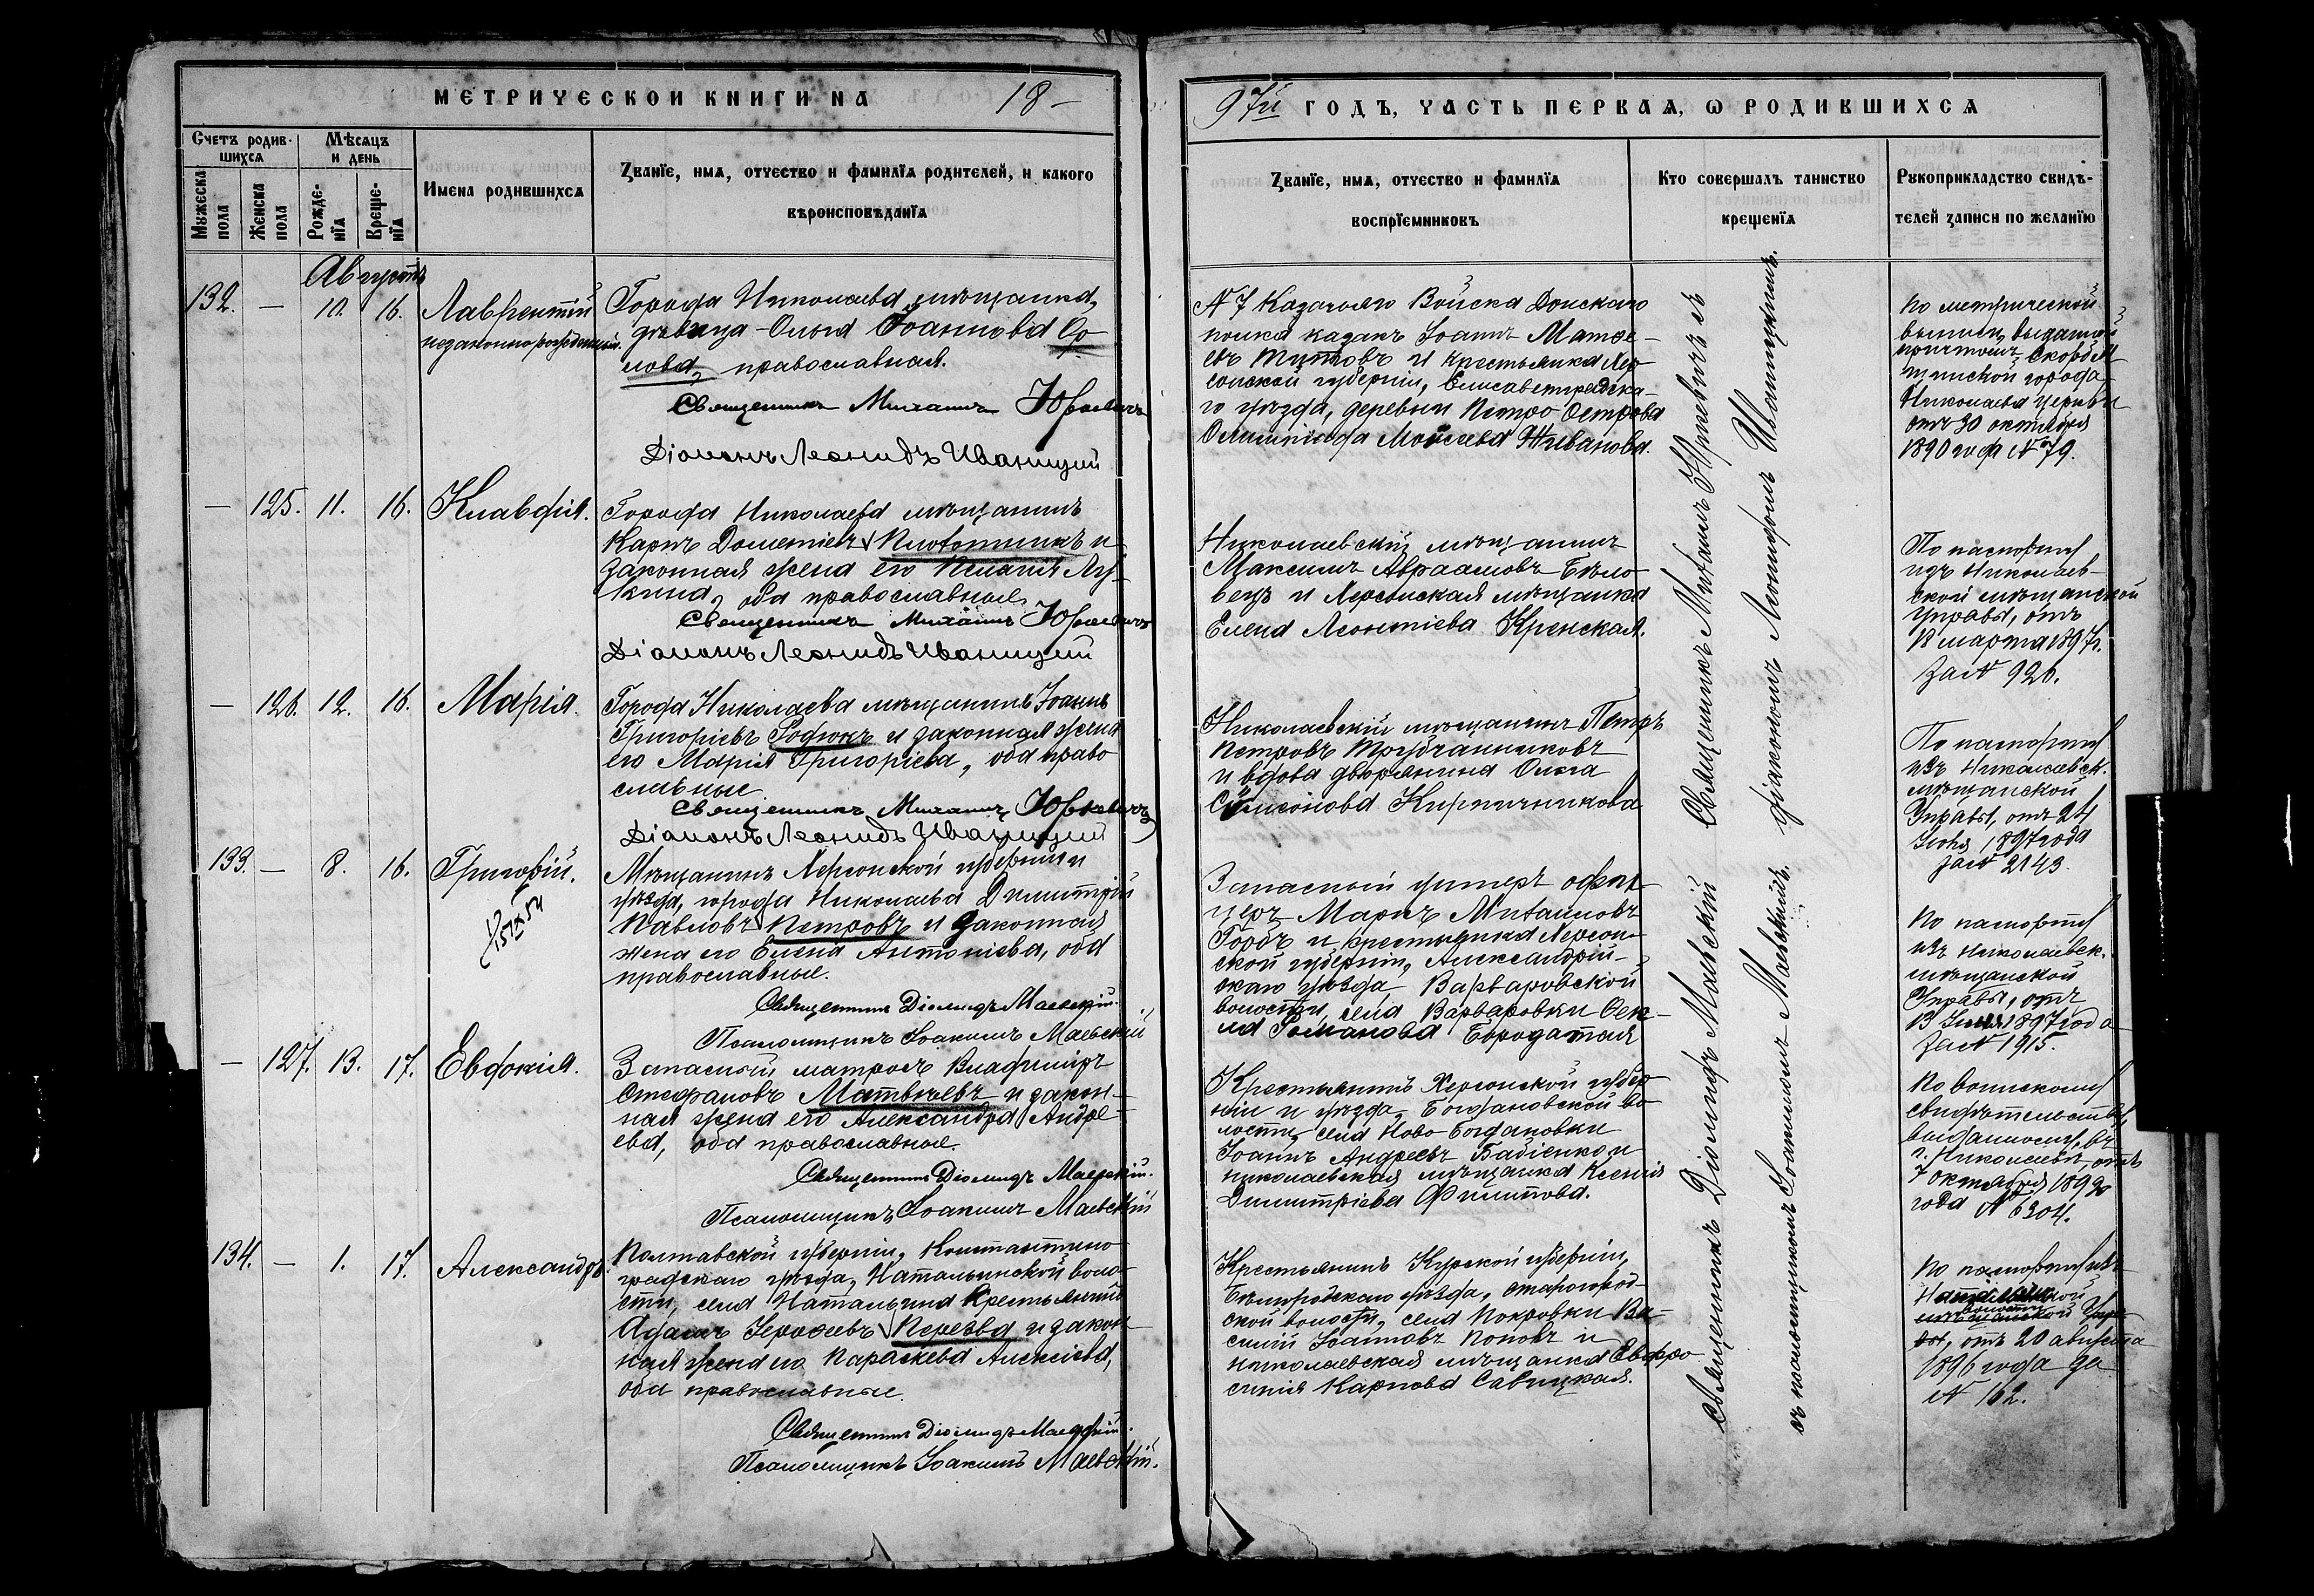 МЕТРИЧЕСКОЙ КНИГИ НА 18-
97й ГОДЪ, ЧАСТЬ ПЕРВАЯ, Ѡ РОДИВШИХСЯ
Счетъ родив-
шихся
Мѣсяцъ
и день
Мужеска
пола
Женска
пола
Рожде-
нїя
Креще-
нїя
Имена родившихся
Званїе, имя, отчество и фамилїя родителей, и какого
вѣроисповѣданїя
Званїе, имя, отчество и фамилїя
воспрїемниковъ
Кто совершалъ таинство
крещенїя
Рукоприкладство свидѣ-
телей записи по желанїю
Августъ
132. — 10. 16. Лаврентій
незаконнорожденный
Города Николаева мѣщанка,
дѣвица Ольга Іоаннова Ор-
лова, православная.
Священникъ Михаилъ Юркевичъ
Діаконъ Леонидъ Иваницкій
N 7 Казачьяго Войска Донскаго
полка казакъ Іоаннъ Матѳе-
евъ и крестьянка Хер-
сонской губерніи, Елисаветградска-
го уѣзда, деревни Петро Острова
Олимпіада Моисеева Живанова.
По метрической
выписи, выданной
причтомъ Скорбя-
щинской города
Николаева церкви
отъ 30 октября
1890 года N 79.
— 125. 11. 16. Клавдія.
Города Николаева мѣщанинъ
Карпъ Дометіевъ и
законная жена его Пелагія Лу-
кина, оба православные.
Священникъ Михаилъ Юркевичъ
Діаконъ Леонидъ Иваницкій
Николаевскій мѣщанинъ
Максимъ Авраамовъ Бѣло-
вецъ и Херсонская мѣщанка
Елена Леонтіева Кренская.
По паспорту
изъ Николаев-
ской мѣщанской
управы, отъ
18 марта 1897 г.
за N 926.
— 126. 12. 16. Марія.
Города Николаева мѣщанинъ Іоаннъ
Григоріевъ Родюкъ и законная жена
его Марія Григоріева, оба право
славные.
Священникъ Михаилъ Юркевичъ
Діаконъ Леонидъ Иваницкій
Николаевскій мѣщанинъ Петръ
Петровъ Трубчанниковъ
и вдова дворянина Ольга
Симеонова Кирпичникова
По паспорту
изъ Николаевск.
мѣщанской
Управы, отъ 24
Іюня 1897 года
за N 2143.
Священникъ Михаилъ Юркевичъ съ
діакономъ Леонидомъ Иваницкимъ.
133. — 8. 16. Григорій.
Мѣщанинъ Херсонской губерніи и
уѣзда, города Николаева Димитрій
Павловъ Петровъ и законная
жена его Елена Антоніева, оба
православные.
Священникъ Діомидъ Маевскій.
Псаломщикъ Іоакимъ Маевскій
Запасный унтеръ офи-
церъ Маркъ Михаиловъ
Горбъ и крестьянка Херсон-
ской губерніи, Александрій-
скаго уѣзда Варваровской
волости, села Варваровки Оек-
ла Романова Бородатая
По паспорту
изъ Николаевск.
мѣщанской
Управы, отъ
13 1897 года
за N 1915.
— 127. 13. 17. Евдокія.
Запасный матросъ Владиміръ
Стефановъ Матвѣевъ и закон-
ная жена его Александра Андре-
ева, оба православные.
Священникъ Діомидъ Маевскій.
Псаломщикъ Іоакимъ Маевскій
Крестьянинъ Херсонской губер-
ніи и уѣзда, Богдановской во-
лости, села Ново Богдановки
Іоаннъ Андреевъ Бабіенко и
николаевская мѣщанка Ксенія
Димитріева Филиппова.
По воинскому
свидѣтельству,
выданному въ
г. Николаевѣ, отъ
7 октября 1892
года N 6304.
134. — 1. 17. Александръ.
Полтавской губерніи, Константино-
градскаго уѣзда, Натальинской воло-
сти, села Натальина крестьянинъ
Адамъ Іероѳеевъ и закон-
ная жена его Параскева Алексіева,
оба православные.
Священникъ Діомидъ Маевскій.
Псаломщикъ Іоакимъ Маевскій.
Крестьянинъ Курской губерніи,
Бѣлгородскаго уѣзда, Старогород-
ской волости, села Покровки Ва-
силій Іоанновъ Поповъ и
николаевская мѣщанка Евфро-
синія Карпова Савицкая.
По паспорту изъ
отъ 20 августа
1896 года за
N 162.
Священникъ Діомидъ Маевскій
съ псаломщикомъ Іоакимомъ Маевскимъ.